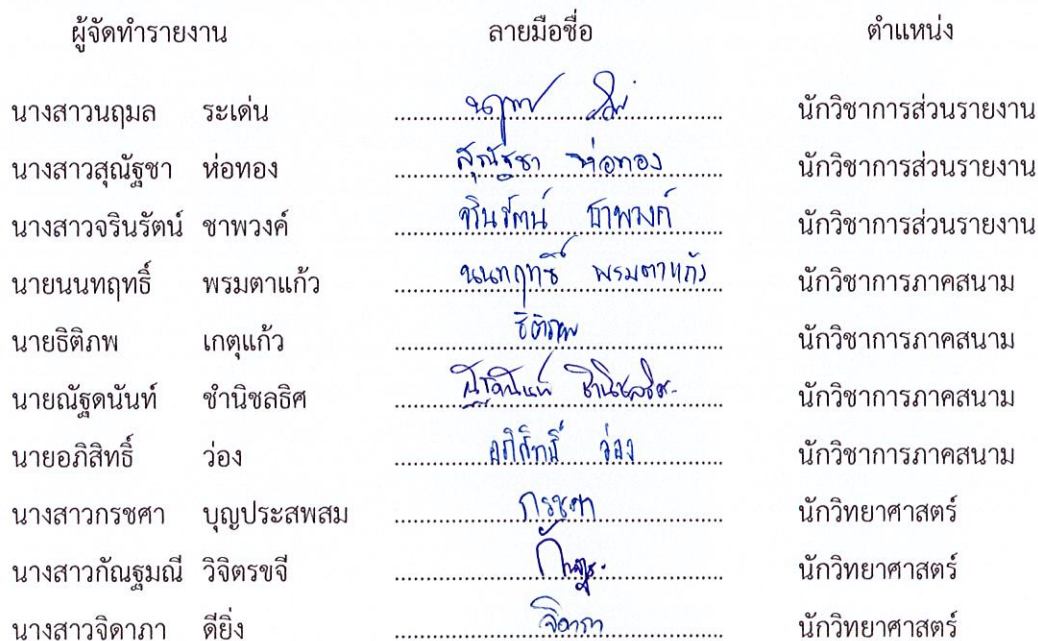 ผู้จัดทำรายงาน ลายมือชื่อ ตำแหน่ง
นางสาวนฤมล ระเด่น นฤมล นักวิชาการส่วนรายงาน
นางสาวสุณัฐชา ห่อทอง สุณัฐชา ห่อทอง นักวิชาการส่วนรายงาน
นางสาวจรินรัตน์ ชาพวงค์ จรินรัตน์ ชาพวงค์ นักวิชาการส่วนรายงาน
นายนนทฤทธิ์ พรมตาแก้ว นนทฤทธิ์ พรมตาแก้ว นักวิชาการภาคสนาม
นายธิติภพ เกตุแก้ว ธิติภพ นักวิชาการภาคสนาม
นายณัฐดนันท์ ชำนิชลธิศ ณัฐดนันท์ ชำนิชลธิศ นักวิชาการภาคสนาม
นายอภิสิทธิ์ ว่อง อภิสิทธิ์ ว่อง นักวิชาการภาคสนาม
นางสาวกรชศา บุญประสพสม กรชศา นักวิทยาศาสตร์
นางสาวกัณฐมณี วิจิตรขจี นักวิทยาศาสตร์
นางสาวจิดาภา ดียิ่ง จิดาภา นักวิทยาศาสตร์